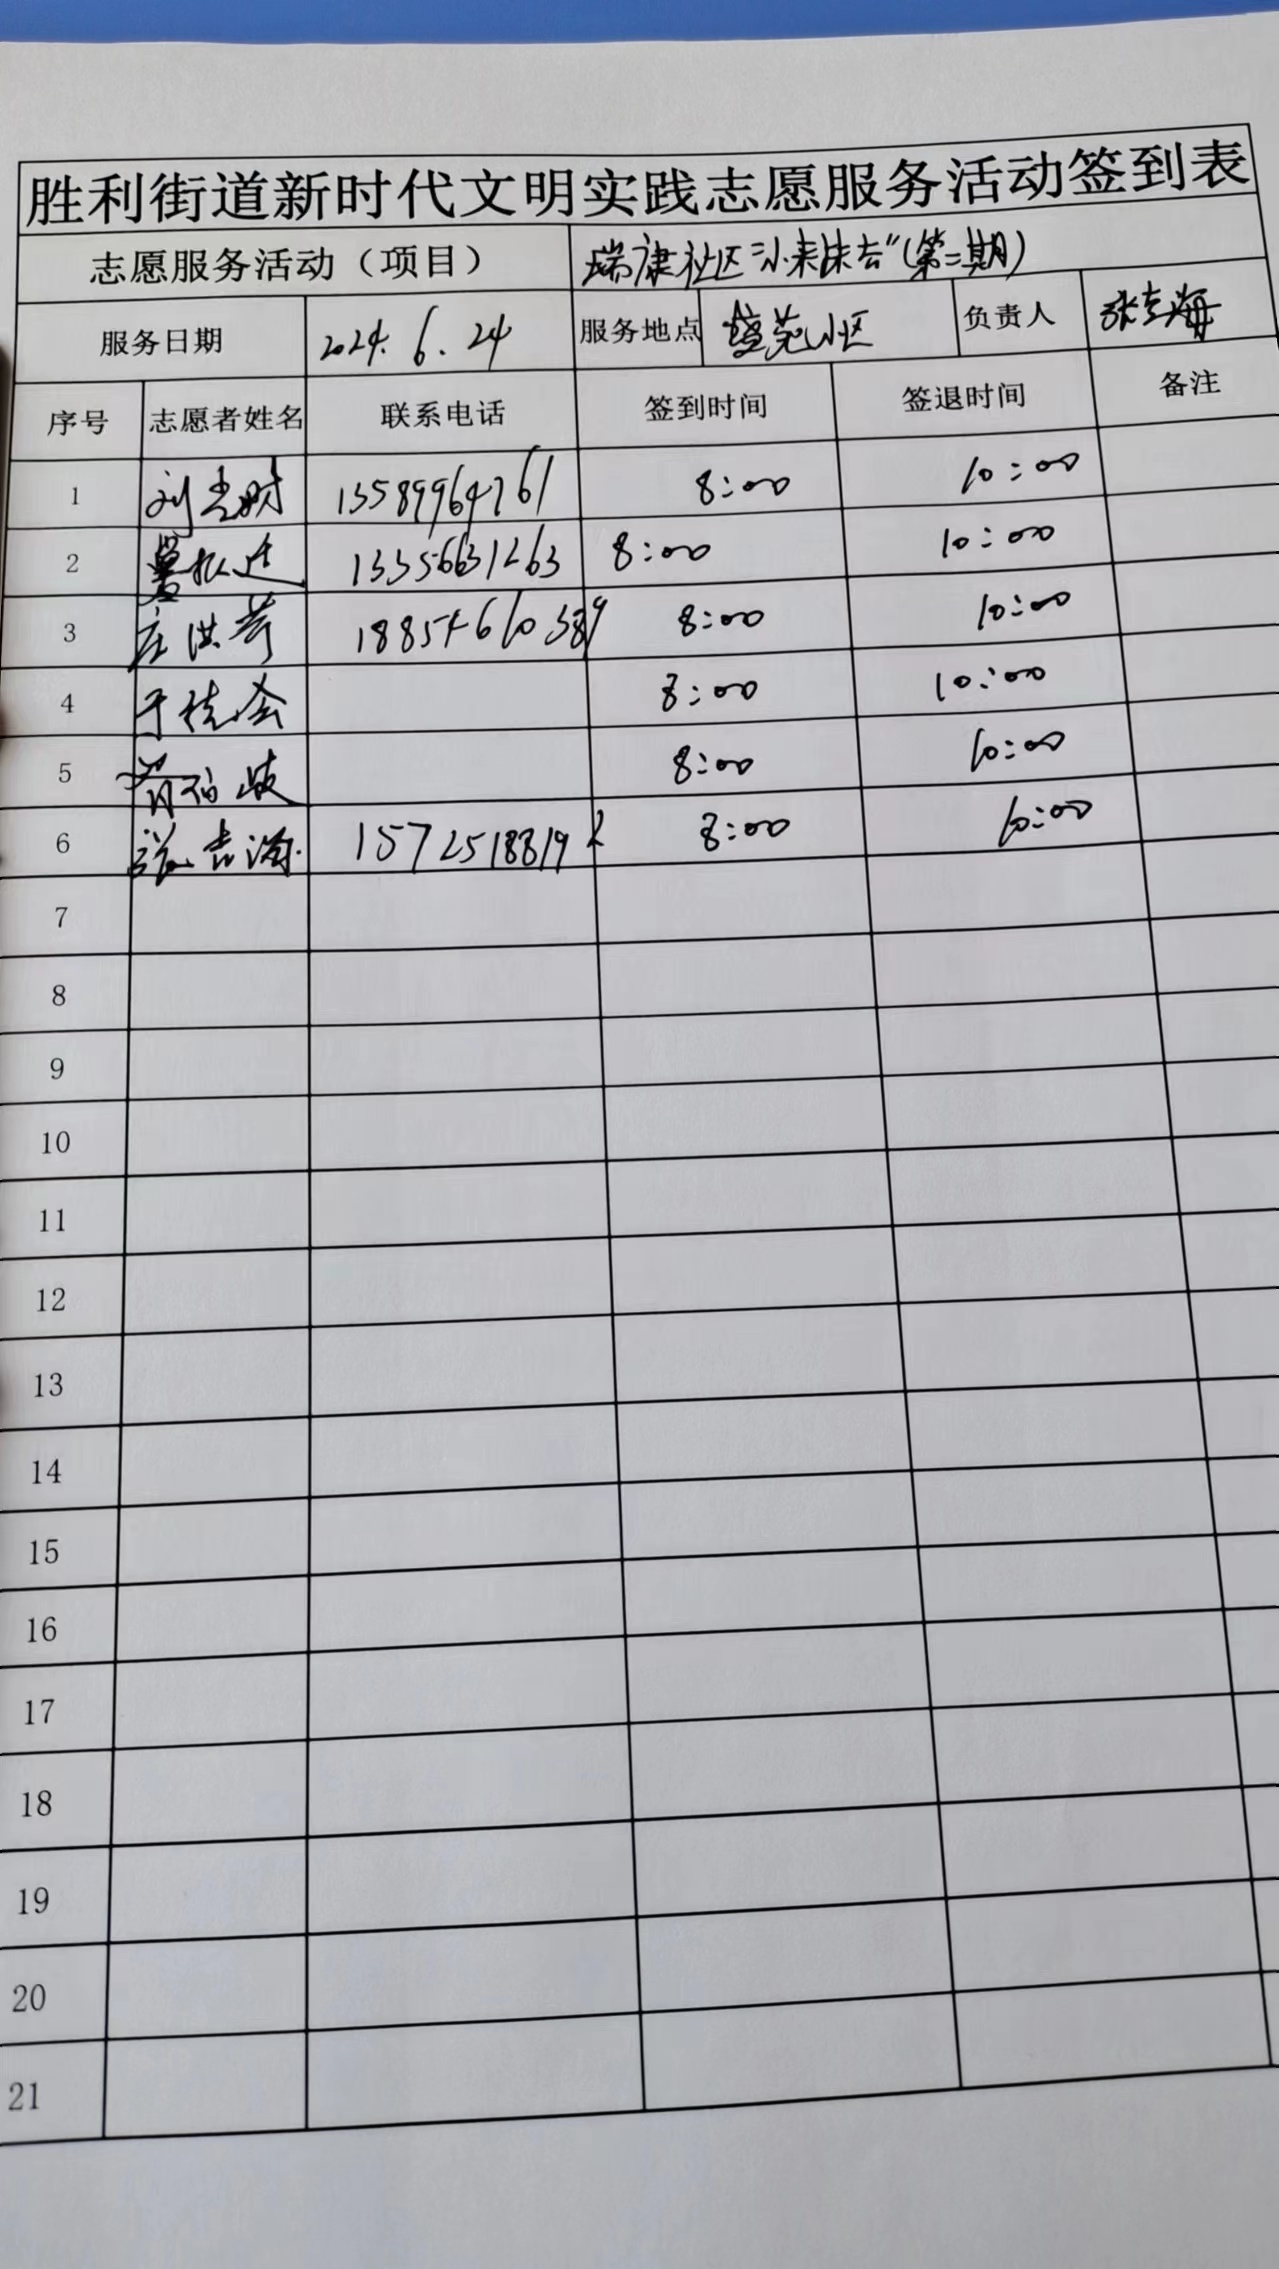 胜利街道新时代文明实践志愿服务活动签到表
志愿服务活动（项目） 瑞康社区 (第二期)
服务日期 2024.6.24 服务地点 小区 负责人 张志海
序号 志愿者姓名 联系电话 签到时间 签退时间 备注
1 刘 13589964761 8:00 10:00
2 13356631263 8:00 10:00
3 庄洪 18854610389 8:00 10:00
4 于桂 8:00 10:00
5 8:00 10:00
6 张 15725188192 8:00 10:00
7
8
9
10
11
12
13
14
15
16
17
18
19
20
21